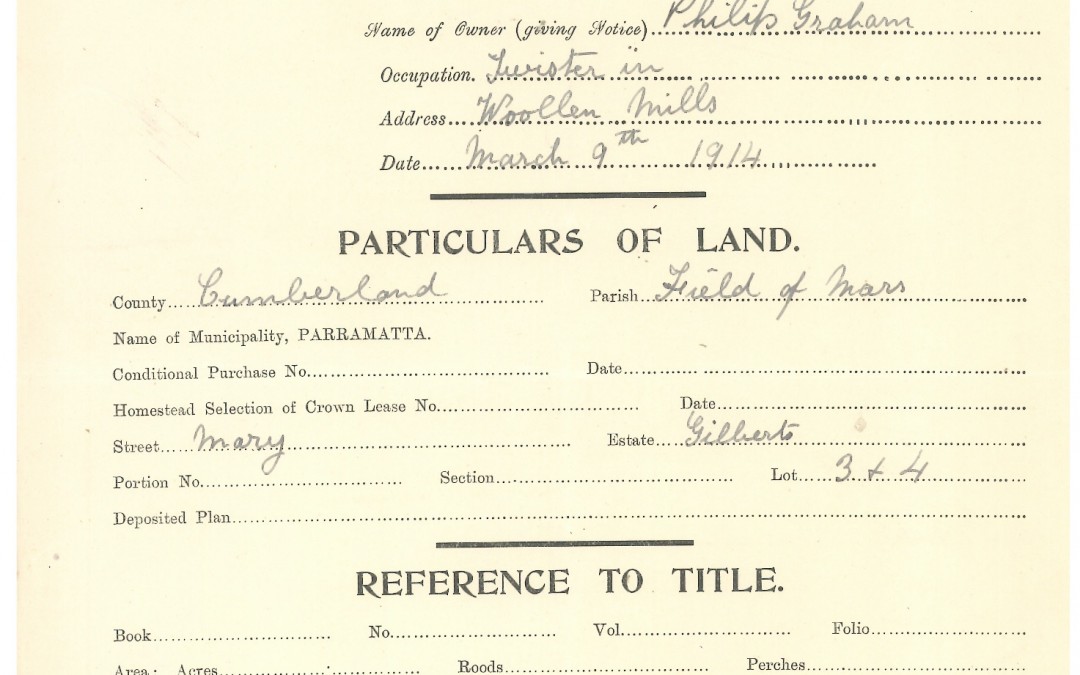 Name of Owner (giving Notice) Philip Graham
Occupation. Twister in
Address Woollen Mills
Date March 9th 1914
PARTICULARS OF LAND.
County Cumberland Parish Field of Mars
Name of Municipality, PARRAMATTA.
Conditional Purchase No. Date
Homestead Selection of Crown Lease No. Date
Street Mary Estate Gilberts
Portion No. Section Lot 3 & 4
Deposited Plan
REFERENCE TO TITLE.
Book No. Vol. Folio
Area: Acres Roods Perches